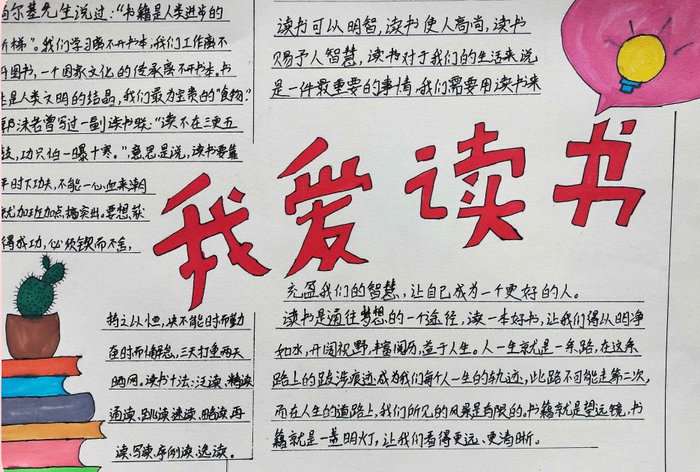 尔基先生说过："书籍是人类进步的
阶梯"。我们学习离不开书本，我们工作离不
开图书，一个国家文化的传承离不开书本。书
是人类文明的结晶，我们最为宝贵的"食物"
郭沫若曾写过一副读书联："读不在三更五
鼓，功只怕一曝十寒。"意思是说，读书要靠
平时下功夫，不能一心血来潮
就加班加点搞突出。要想获
得成功，必须锲而不舍，
持之以恒，决不能时而勤
奋时而懈怠，三天打鱼两天
晒网。读书十法：泛读、精读
通读、跳读速读、略读、再
读、写读、序例读、选读。
读书可以明智，读书使人高尚，读书
赐予人智慧，读书对于我们的生活来说
是一件最重要的事情，我们需要用读书来
我爱读书
充盈我们的智慧，让自己成为一个更好的人。
读书是通往梦想的一个途径，读一本好书，让我们得以明净
如水，开阔视野，丰富阅历，益于人生。人一生就是一条路，在这条
路上的跋涉痕迹成为我们每个人一生的轨迹，此路不可能走第二次，
而在人生的道路上，我们所见的风景是有限的。书籍就是望远镜，书
籍就是一盏明灯，让我们看得更远、更清晰。